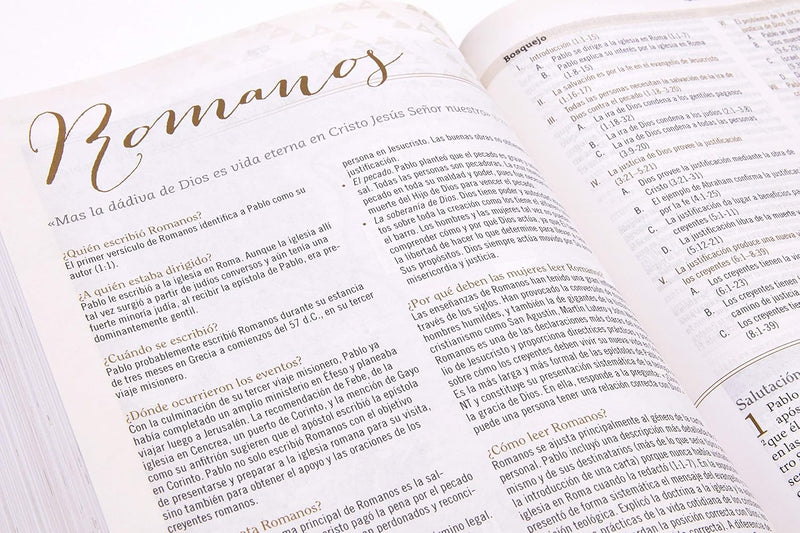 Romanos
«Mas la dádiva de Dios es vida eterna en Cristo Jesús Señor nuestro»
¿Quién escribió Romanos?
El primer versículo de Romanos identifica a Pablo como su
autor (1:1).
¿A quién estaba dirigido?
Pablo le escribió a la iglesia en Roma. Aunque la iglesia allí
tal vez surgió a partir de judíos conversos y aún tenía una
fuerte minoría judía, al recibir la epístola de Pablo, era pre-
dominantemente gentil.
¿Cuándo se escribió?
Pablo probablemente escribió Romanos durante su estancia
de tres meses en Grecia a comienzos del 57 d.C., en su tercer
viaje misionero.
¿Dónde ocurrieron los eventos?
Con la culminación de su tercer viaje misionero. Pablo ya
había completado un amplio ministerio en Éfeso y planeaba
viajar luego a Jerusalén. La recomendación de Febe, de la
iglesia en Cencrea, un puerto de Corinto, y la mención de Gayo
como su anfitrión sugieren que el apóstol escribió la epístola
en Corinto. Pablo no solo escribió Romanos con el objetivo
de presentarse y preparar a la iglesia romana para su visita,
sino también para obtener el apoyo y las oraciones de los
creyentes romanos.
ata Romanos?
ma principal de Romanos es la sal-
cristo pagó la pena por el pecado
n perdonados y reconci-
mino legal.
persona en Jesucristo. Las buenas obras
justificación.
• El pecado. Pablo planteó que el pecado es
sal. Todas las personas son pecadoras.
pecado en toda su maldad y poder, pues fue
muerte del Hijo de Dios para vencer el pecado.
• La soberanía de Dios. Dios tiene poder y
tos sobre toda la creación como los tiene el
el barro. Los hombres y las mujeres tal vez no
comprender cómo y por qué Dios actúa, pero
la libertad de hacer lo que determine, para
Sus propósitos. Dios siempre actúa
misericordia y justicia.
¿Por qué deben las mujeres leer Romanos?
Las enseñanzas de Romanos han tenido una gran
través de los siglos. Han provocado la conversión
hombres humildes, y también la de gigantes
cristianismo como San Agustín, Martín Lutero y
Romanos es una de las declaraciones más claras
lio de Jesucristo y proporciona directrices
sobre cómo los creyentes deben vivir su
Es la más larga y más formal de las epístolas
NT y constituye su presentación sistemática
la gracia de Dios. En ella, responde a la pregunta:
puede una persona tener una relación correcta con
¿Cómo leer Romanos?
Romanos se ajusta principalmente al género de la carta
personal. Pablo incluyó una descripción más detallada
mismo y de sus destinatarios (más de lo que sería
la introducción de una carta) porque nunca había
iglesia en Roma cuando la redactó (1:1-7). En la
presentó de forma sistemática el mensaje del
cisión teológica. Explicó la doctrina a la iglesia
prácticas de la vida cotidiana de los
posición correcta con Dios
correcta). A diferencia
Bosquejo
I. Introducción (1:1-15)
A. Pablo se dirige a la iglesia en Roma (1:1-7)
B. Pablo explica su interés por la iglesia en Roma
(1:8-15)
II. La salvación es por la fe en el evangelio de Jesucristo
(1:16-17)
III. Todas las personas necesitan la salvación de la ira de
Dios contra el pecado (1:18–3:20)
A. La ira de Dios condena a los gentiles paganos
(1:18-32)
B. La ira de Dios condena a los judíos (2:1–3:8)
C. La ira de Dios condena a todas las personas
(3:9-20)
IV. La justicia de Dios provee la justificación
(3:21–5:21)
A. Dios provee la justificación mediante la obra de
Cristo (3:21-31)
B. El ejemplo de Abraham confirma la justificación
por la fe (4:1-25)
C. La justificación da lugar a beneficios para
creyentes (5:1-11)
D. La justificación libra de la muerte
(5:12-21)
V. La justificación produce una nueva
los creyentes (6:1–8:39)
A. Los creyentes tienen la
(6:1-23)
B. Los creyentes tienen
camino de justicia
C. Los creyentes
(8:1-39)
VI. El problema de la
Salutación
1 Pablo
após
² que él
en las
tro